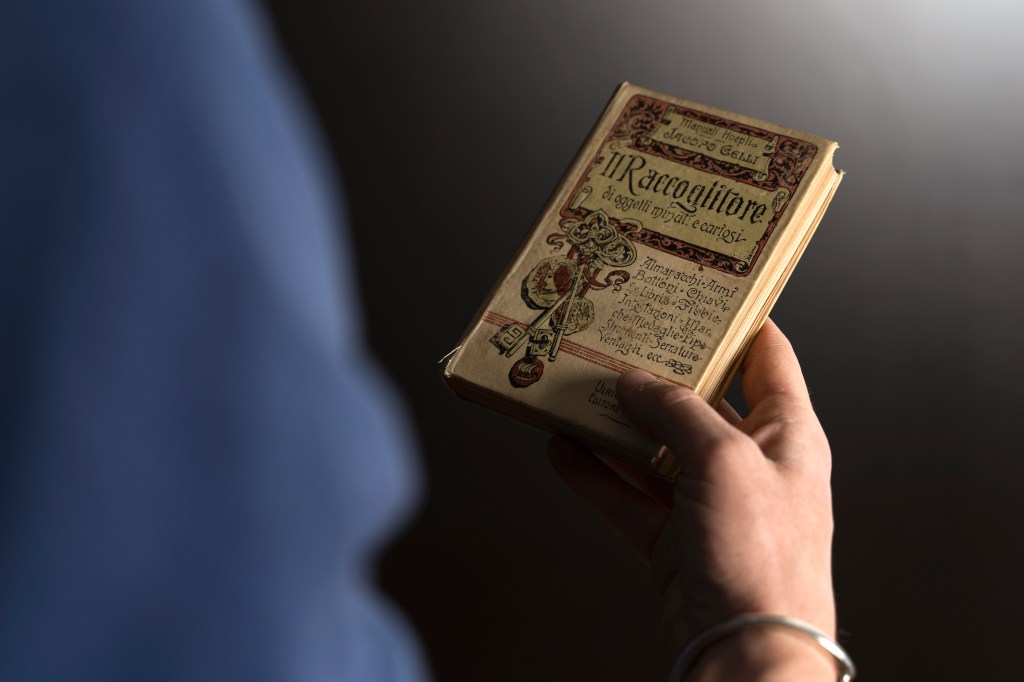 Manuali Hoepli
JACOPO GELLI
Il Raccoglitore
di oggetti minuti e curiosi
Almanacchi · Armi
Bottoni · Chiavi
Ex libris · Fibbie
Intestazioni · Mar
che · Medaglie · Pipe
Strumenti · Serrature
Ventagli, ecc
EDITORE